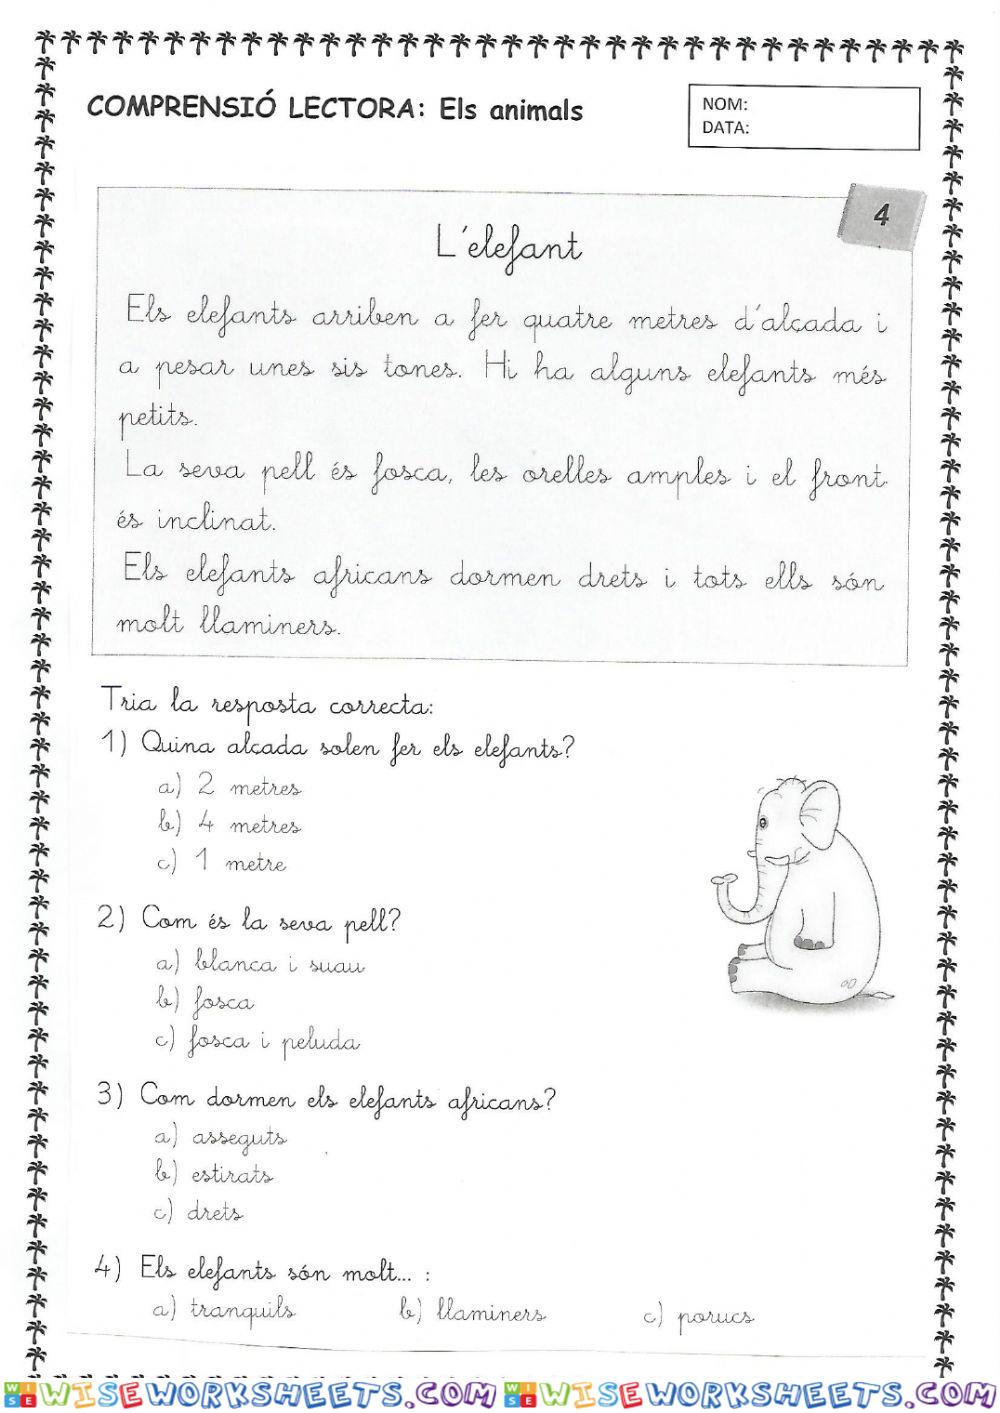 COMPRENSIÓ LECTORA: Els animals
NOM:
DATA:
4
L'elefant
Els elefants arriben a fer quatre metres d'alçada i
a pesar unes sis tones. Hi ha alguns elefants més
petits.
La seva pell és fosca, les orelles amples i el front
és inclinat.
Els elefants africans dormen drets i tots ells són
molt llaminers.
Tria la resposta correcta:
1) Quina alçada solen fer els elefants?
a) 2 metres
b) 4 metres
c) 1 metre
2) Com és la seva pell?
a) blanca i suau
b) fosca
c) fosca i peluda
3) Com dormen els elefants africans?
a) asseguts
b) estirats
c) drets
4) Els elefants són molt... :
a) tranquils b) llaminers c) porucs
WISEWORKSHEETS.COM WISEWORKSHEETS.COM